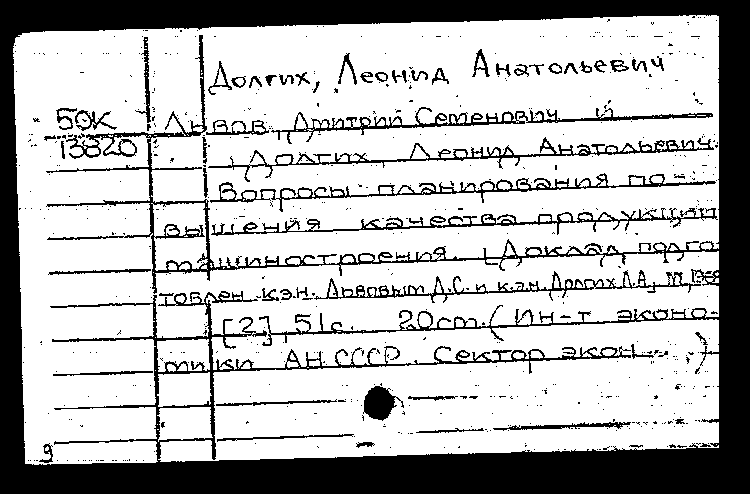 Долгих, Леонид Анатольевич
50К Львов, Дмитрий Семенович и
13820 Долгих, Леонид Анатольевич.
Вопросы планирования по-
вышения качества продукции
машиностроения. [Доклад, подго-
товлен к.э.н. Львовым Д.С. и к.э.н. Долгих Л.А., М, 1968
[2], 51с. 20cm. (Ин-т эконо-
мики АН СССР. Сектор экон... )
9